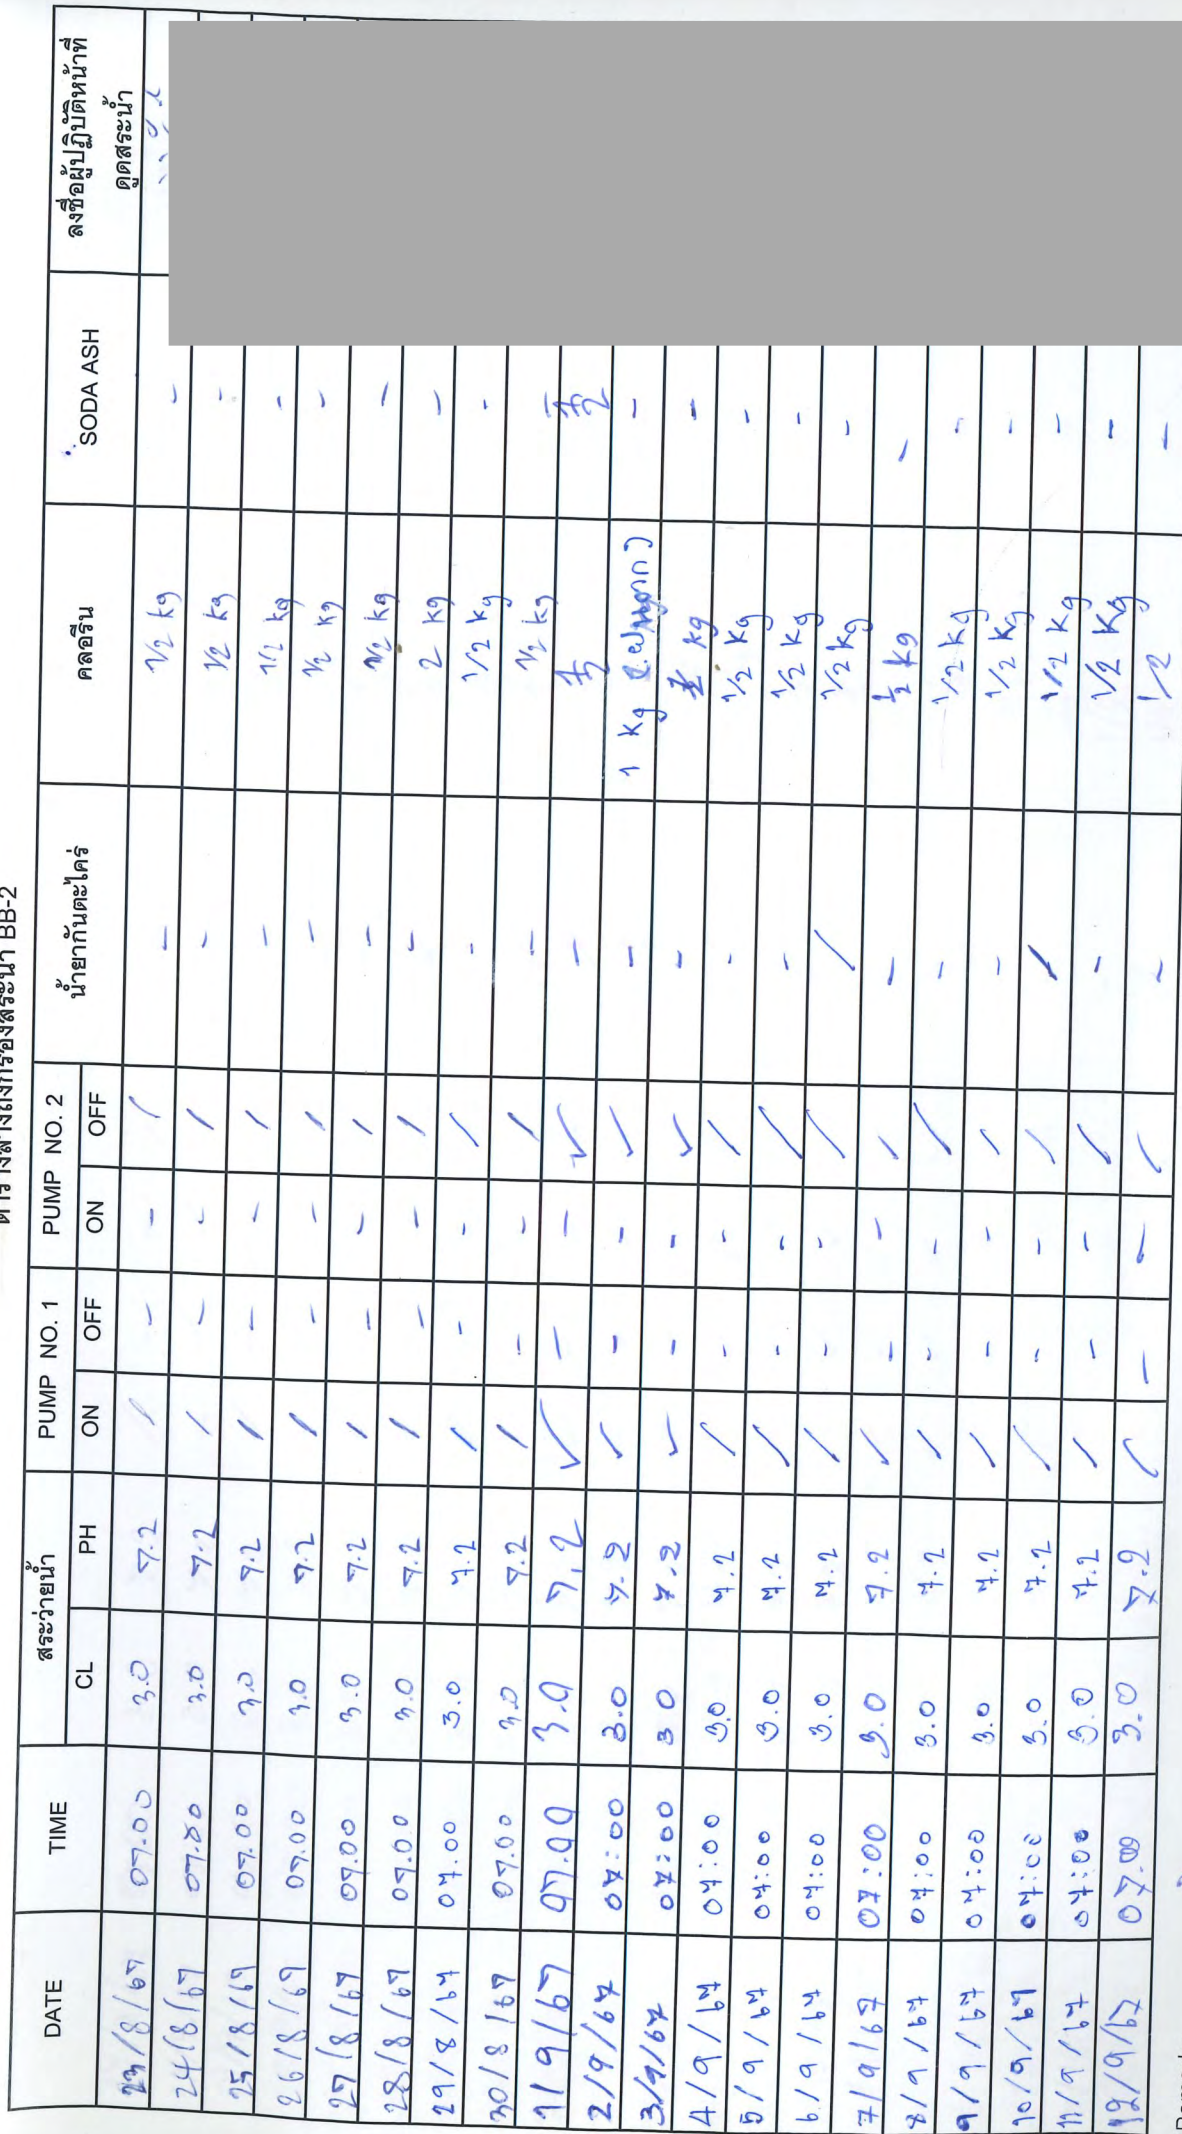 ตารางล้างถังกรองสระน้ำ BB-2
DATE TIME สระว่ายน้ำ PUMP NO. 1 PUMP NO. 2 น้ำยากันตะไคร่ คลอรีน SODA ASH ลงชื่อผู้ปฏิบัติหน้าที่
ดูดสระน้ำ
CL PH ON OFF ON OFF
23/8/67 07.00 3.0 7.2 / - - / - 1/2 kg -
24/8/67 07.00 3.0 7.2 / - - / - 1/2 kg -
25/8/67 07.00 3.0 7.2 / - - / - 1/2 kg -
26/8/67 07.00 3.0 7.2 / - - / - 1/2 kg -
27/8/67 07.00 3.0 7.2 / - - / - 1/2 kg -
28/8/67 07.00 3.0 7.2 / - - / - 2 kg -
29/8/67 07.00 3.0 7.2 / - - / - 1/2 kg -
30/8/67 07.00 3.0 7.2 / - - / - 1/2 kg -
1/9/67 07.00 3.0 7.2 ✓ - - ✓ - 1/2
2/9/67 07:00 3.0 7.2 ✓ - - ✓ - 1 kg -
3/9/67 07:00 3 0 7.2 ✓ - - ✓ - kg -
4/9/67 07:00 3.0 7.2 / - - / - 1/2 kg -
5/9/67 07:00 3.0 7.2 / - - / - 1/2 kg -
6/9/67 07:00 3.0 7.2 / - - / / 1/2 kg -
7/9/67 07:00 3.0 7.2 / - - / - 1/2 kg -
8/9/67 07:00 3.0 7.2 / - - / - 1/2 kg -
9/9/67 07:00 3.0 7.2 / - - / - 1/2 kg -
10/9/67 07:00 3.0 7.2 / - - / / 1/2 kg -
11/9/67 07:00 3.0 7.2 / - - / - 1/2 kg -
12/9/67 07.00 3.0 7.2 / - - / - 1/2 -